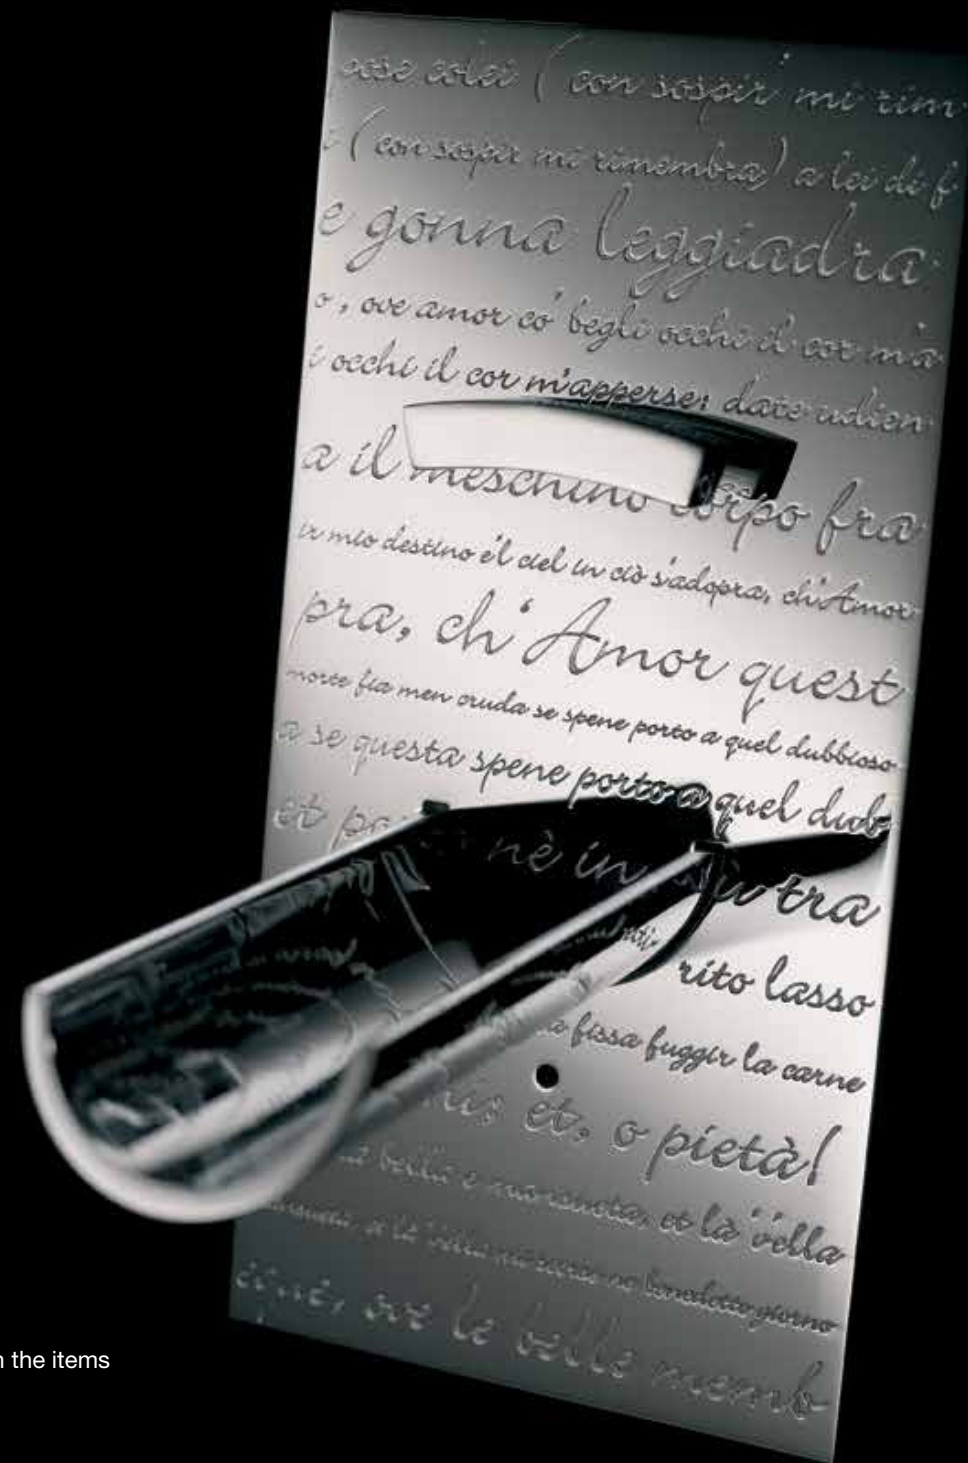 pose colei ( con sospir' mi rim
i ( con sospir mi rimembra) a lei di f
e gonna leggiadra
o , ove amor co' begli occhi il cor m'a
i occhi il cor m'apperse: date udien
a il meschino corpo fra
ir mio destino e'l ciel in ciò s'adopra, ch'Amor
pra, ch' Amor quest
morte fia men cruda se spene porto a quel dubbioso
a se questa spene porto a quel dub
et po nè in più tra
rito lasso
a fissa fuggir la carne
et, o pietà!
bella e mansueta, et là 'v'ella
benedetto giorno
ove le belle memb
n the items